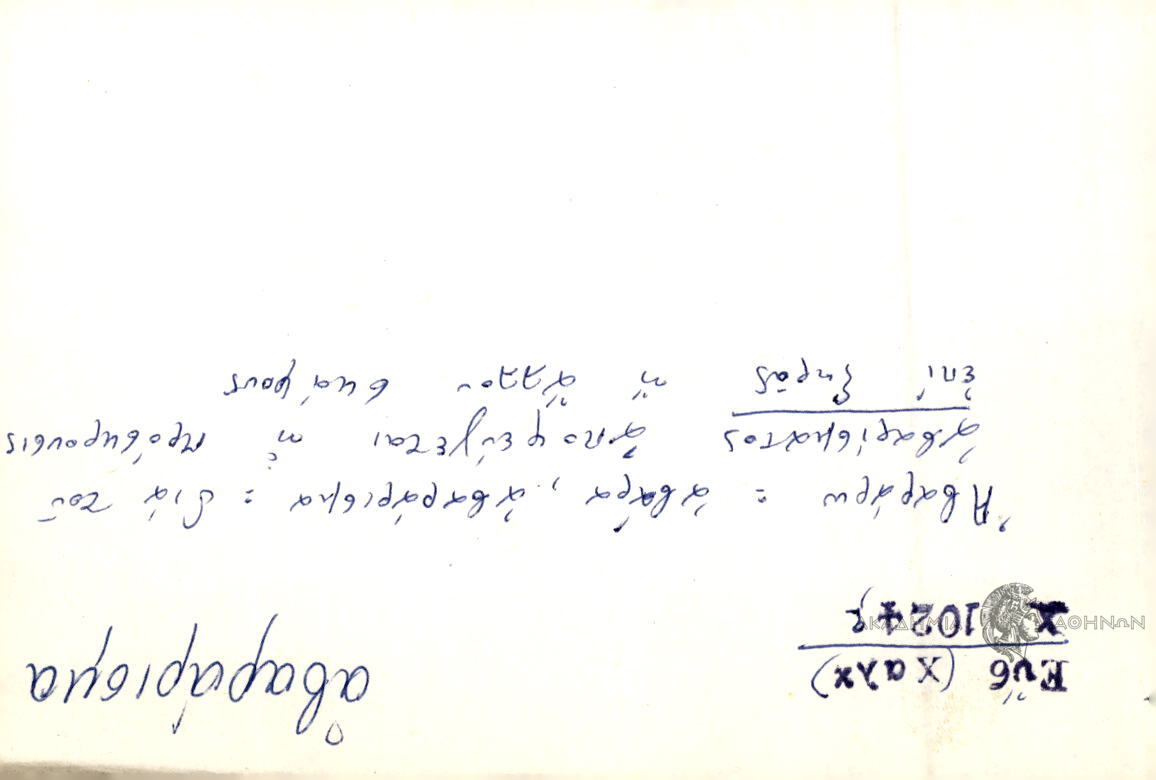 Εὔβ (Χαλκ)
Χ 1024
ΑΚΑΔΗΜΙΑ ΑΘΗΝΩΝ
ἀβαράρισμα
Ἀβαράρω = ἀβάρα, ἀβαράρισμα = διὰ τοῦ
ἀβαρίσματος ἀποφεύγεται ἡ πρόσκρουσις
ἐπὶ ξηρᾶς ἢ ἄλλου σκάφους